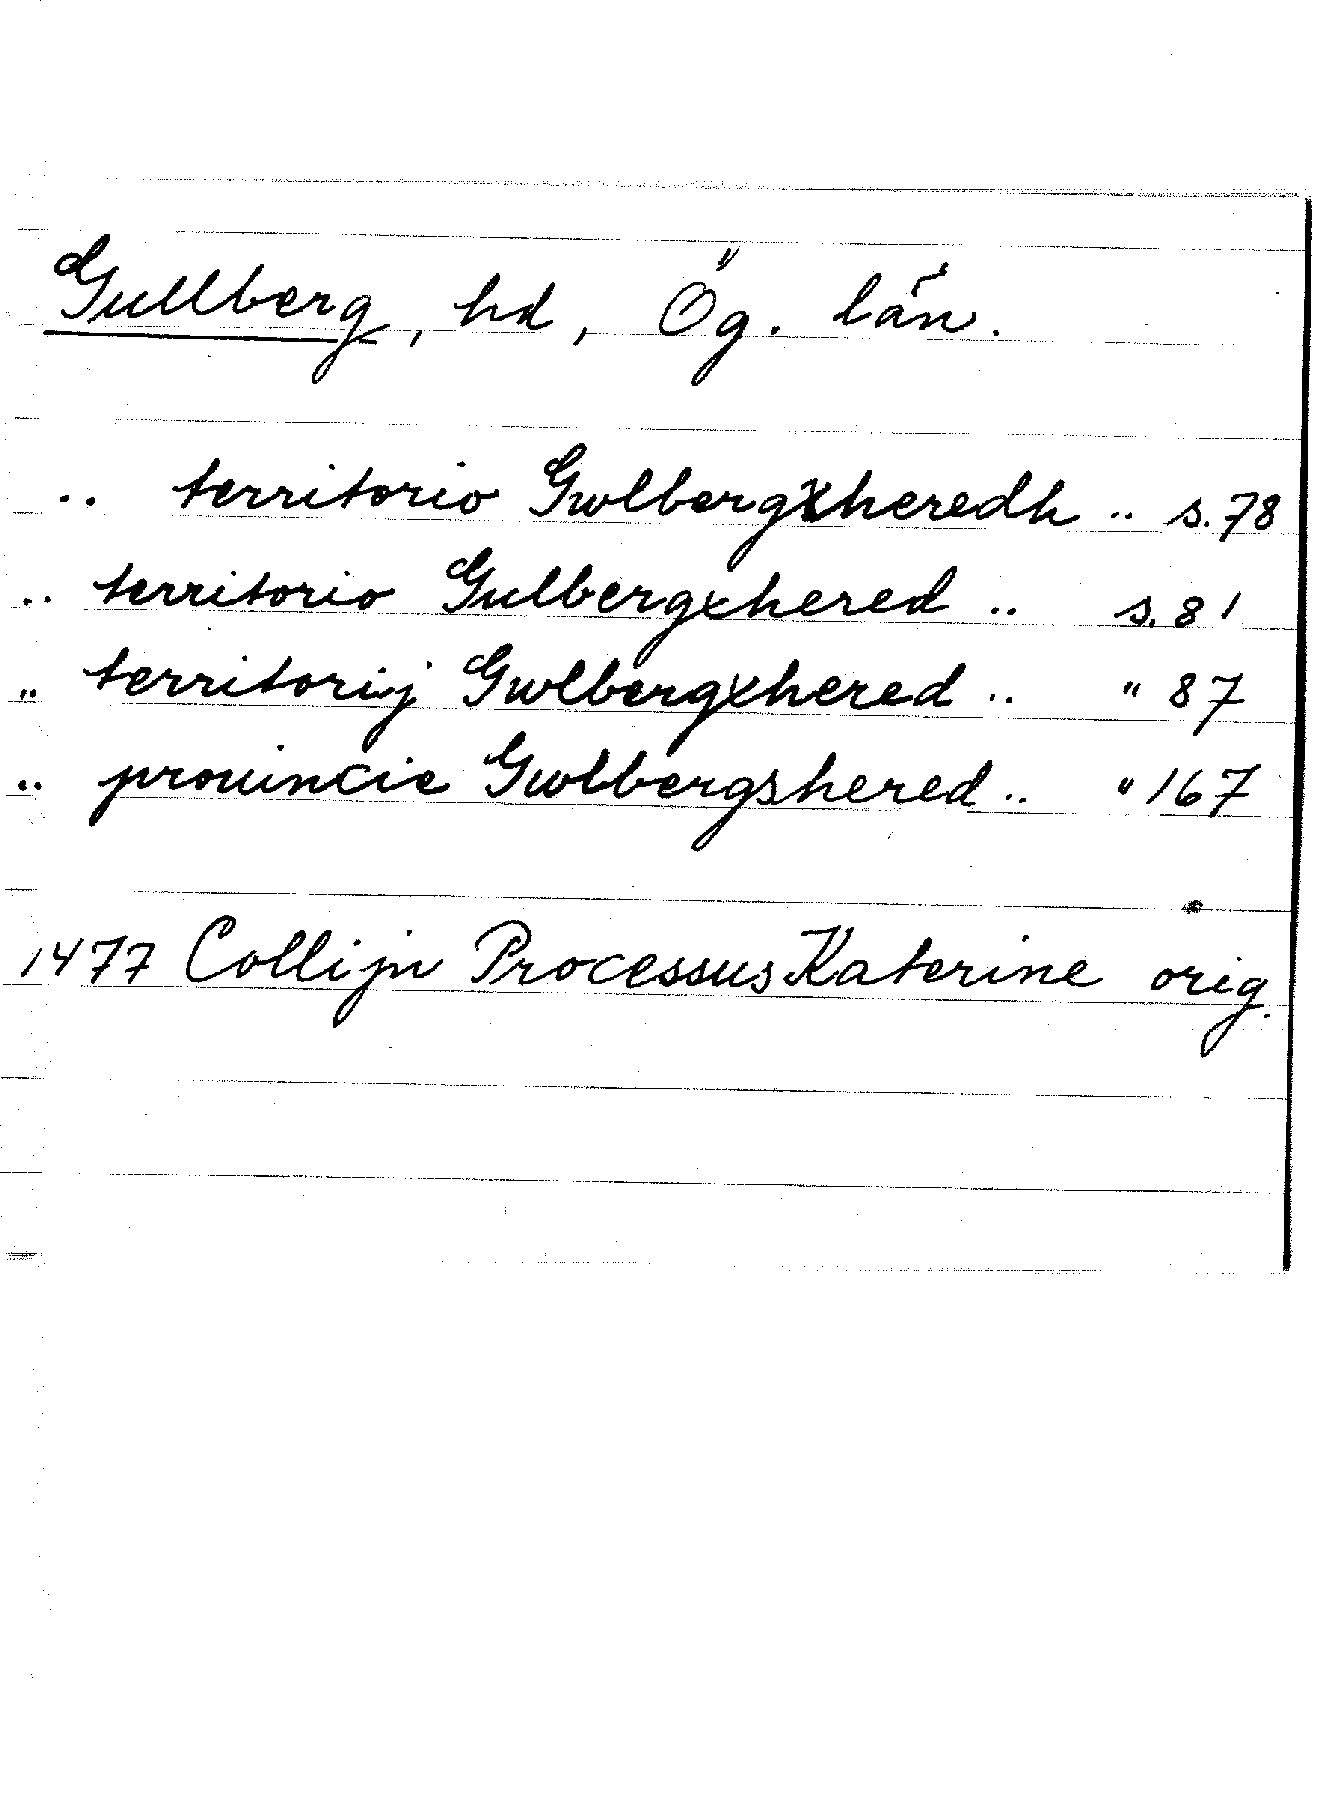 Gullberg, hd, Ög. län.
.. territorio Gwlbergxheredh .. s. 78
.. territorio Gulbergxhered .. s. 81
.. territorij Gwlbergxhered .. " 87
.. prouincie Gwlbergshered .. " 167
1477 Collijn Processus Katerine orig.